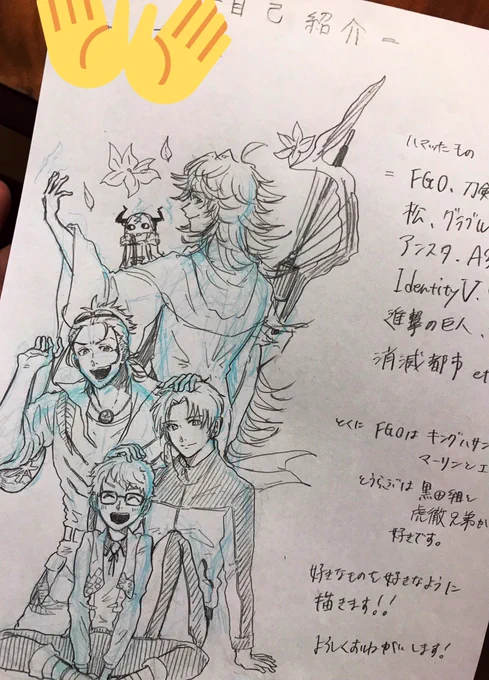 自己紹介 =
ハマッたもの
= FGO、刀剣
松、グラブル
アンスタ、AS
Identity V、
進撃の巨人、
消滅都市 et
とくに FGOは キングハサン
マーリンとエ
とうらぶは 黒田組と
虎徹兄弟か
好きです。
好きなものを好きなように
描きます!!
よろしくおねがいします!